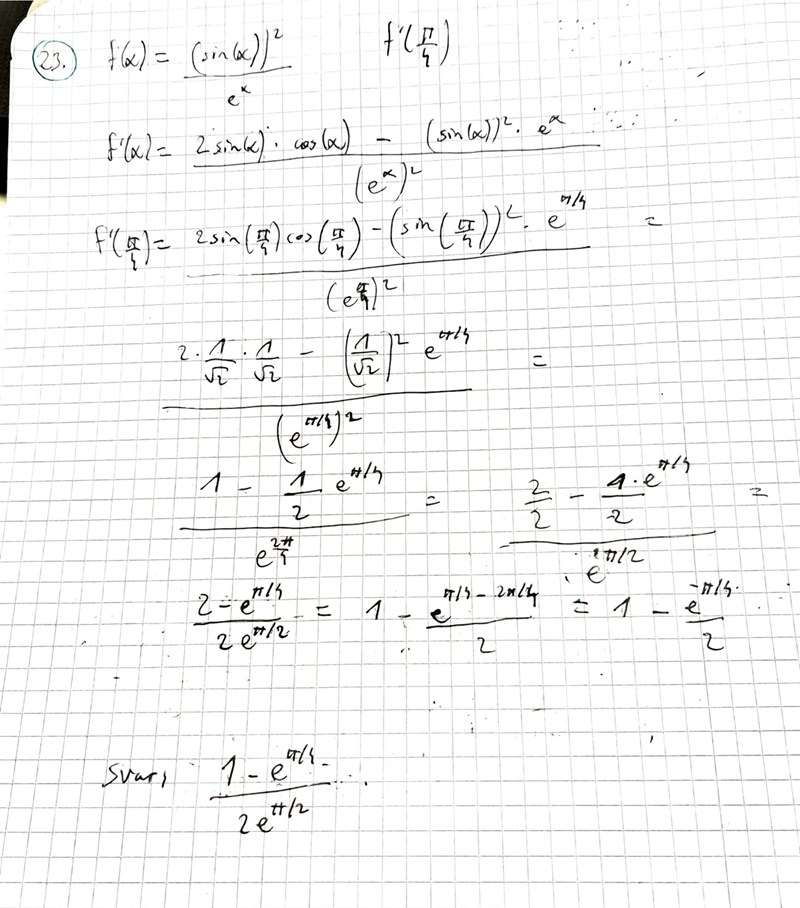 23. f(x) = (sin(x))² / e^x    f'(π/4)
f'(x) = (2sin(x) · cos(x) − (sin(x))² · e^x) / (e^x)²
f'(π/4) = (2sin(π/4)cos(π/4) − (sin(π/4))² · e^(π/4)) / (e^(π/4))² =
(2 · 1/√2 · 1/√2 − (1/√2)² e^(π/4)) / (e^(π/4))² =
(1 − 1/2 e^(π/4)) / e^(2π/4) = (2/2 − (1·e^(π/4))/2) / e^(π/2) =
(2 − e^(π/4)) / (2e^(π/2)) = 1 − e^(π/4 − 2π/4) / 2 = 1 − e^(−π/4) / 2
Svar, (1 − e^(π/4)) / (2e^(π/2))